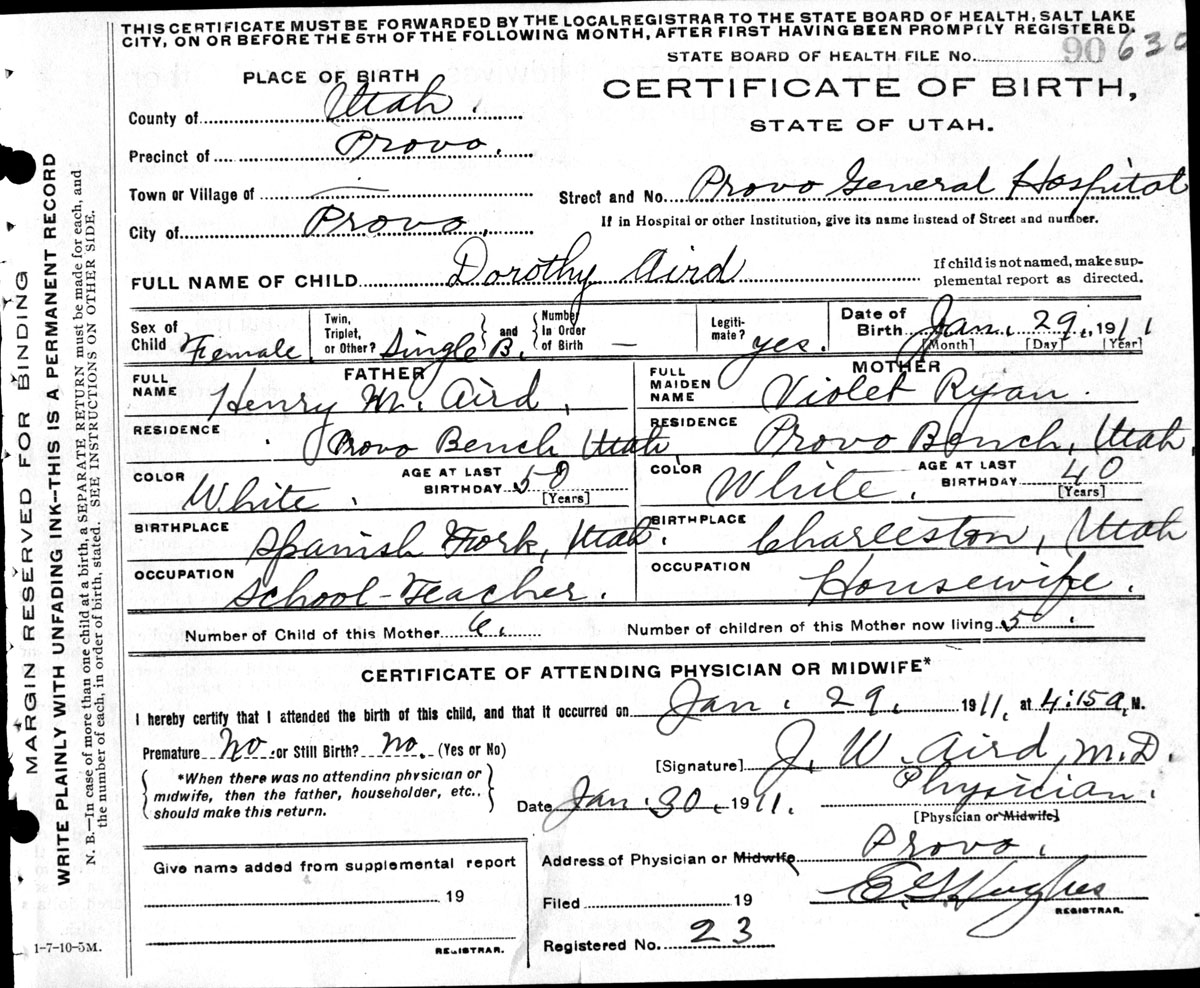 THIS CERTIFICATE MUST BE FORWARDED BY THE LOCAL REGISTRAR TO THE STATE BOARD OF HEALTH, SALT LAKE
CITY, ON OR BEFORE THE 5TH OF THE FOLLOWING MONTH, AFTER FIRST HAVING BEEN PROMPTLY REGISTERED.
STATE BOARD OF HEALTH FILE No. 90 630
PLACE OF BIRTH
CERTIFICATE OF BIRTH,
STATE OF UTAH.
County of Utah.
Precinct of Provo.
Town or Village of —
Street and No. Provo General Hospital
City of Provo.
If in Hospital or other Institution, give its name instead of Street and number.
FULL NAME OF CHILD Dorothy Aird
If child is not named, make sup-
plemental report as directed.
Sex of Child Female.
Twin, Triplet, or Other? Single B.
and Number In Order of Birth —
Legiti-mate? yes.
Date of Birth Jan. 29, 1911
[Month] [Day] [Year]
FATHER
FULL NAME Henry M. Aird.
RESIDENCE Provo Bench, Utah
COLOR White.
AGE AT LAST BIRTHDAY 50
[Years]
BIRTHPLACE Spanish Fork, Utah.
OCCUPATION School-Teacher.
MOTHER
FULL MAIDEN NAME Violet Ryan.
RESIDENCE Provo Bench, Utah
COLOR White.
AGE AT LAST BIRTHDAY 40
[Years]
BIRTHPLACE Charleston, Utah
OCCUPATION Housewife.
Number of Child of this Mother 6.
Number of children of this Mother now living 5.
CERTIFICATE OF ATTENDING PHYSICIAN OR MIDWIFE*
I hereby certify that I attended the birth of this child, and that it occurred on Jan. 29, 1911, at 4:15 a. M.
Premature No. or Still Birth? no. (Yes or No)
*When there was no attending physician or
midwife, then the father, householder, etc.,
should make this return.
[Signature] J. W. Aird, M.D.
Physician.
Date Jan. 30, 1911.
[Physician or Midwife]
Give name added from supplemental report
19
REGISTRAR.
Address of Physician or Midwife Provo.
Filed 19
E. G. Hughes
REGISTRAR.
Registered No. 23
1-7-10-5M.
MARGIN RESERVED FOR BINDING
WRITE PLAINLY WITH UNFADING INK--THIS IS A PERMANENT RECORD
N. B.—In case of more than one child at a birth, a SEPARATE RETURN must be made for each, and
the number of each, in order of birth, stated. SEE INSTRUCTIONS ON OTHER SIDE.